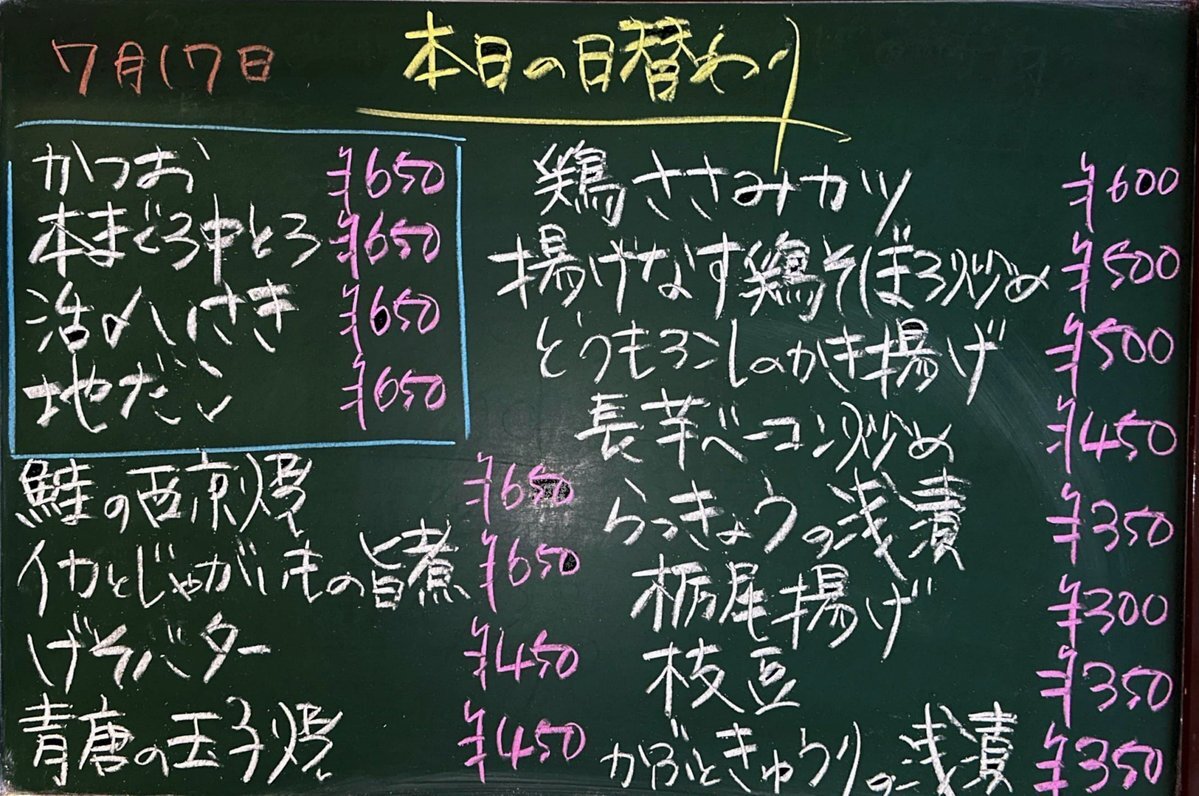 7月17日
本日の日替わり
かつお ¥650
本まぐろ中とろ ¥650
活〆いさき ¥650
地だこ ¥650
鮭の西京焼 ¥650
イカとじゃがいもの旨煮 ¥650
げそバター ¥450
青唐の玉子焼 ¥450
鶏ささみカツ ¥600
揚げなす鶏そぼろ炒め ¥500
とうもろこしのかき揚げ ¥500
長芋ベーコン炒め ¥450
らっきょうの浅漬 ¥350
栃尾揚げ ¥300
枝豆 ¥350
かぶときゅうりの浅漬 ¥350